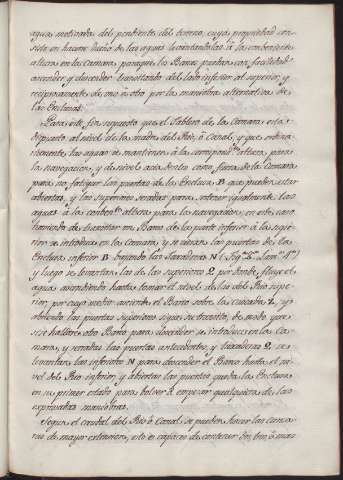 agua motivada del pendiente del terreno, cuya propiedad con-
siste en hacerse dueño de las aguas levantandolas à la conveniente
altura en la Camara, para que los Barcos puedan con facilidad
ascender y descender transitando del lado inferior al superior, y
reciprocamente de uno à otro por la maniobra alternativa de
las Esclusas.
Para esto, se supuesto que el Tablero de la Camara esta
dispuesto al nivel de la madre del Rio, ò Canal, y que ordina-
riamente, las aguas se mantienen à la correspond.te altura para
la navegacion, y de nivel asia dentro como fuera de la Camara
para no fatigar las puertas de la Esclusa B que pueden estar
abiertas, y las superiores cerradas para sostener igualmente las
aguas à la conven.te altura para la navegacion, en este caso
haviendo de transitar un Barco de la parte inferior à la supe-
rior se introduce en la Camara, y se cierran las puertas de la
Esclusa inferior B bajando las Taraderas N (Fig. Lam.a)
y luego se levantan las de las superiores Q por donde fluye el
agua ascendiendo hasta tomar el nivel de las del Rio supe-
rior, por cuyo medio asciende el Barco sobre la y
abiertas las puertas superiores sigue su transito, de modo que
si se hallare otro Barco para descender se introduce en la Ca-
mara, y cerradas las puertas antecedentes, y taraderas Q, se
levantan las inferiores N para descender el Barco hasta el ni-
vel del Rio inferior, y abiertas las puertas queda la Esclusa
en su primer estado para bolver à empezar qualquiera de las
expresadas maniobras.
Segun el caudal del Rio ò Canal se pueden hacer las Cama-
ras de mayor extension, esto es capaces de contener dos, tres ò mas